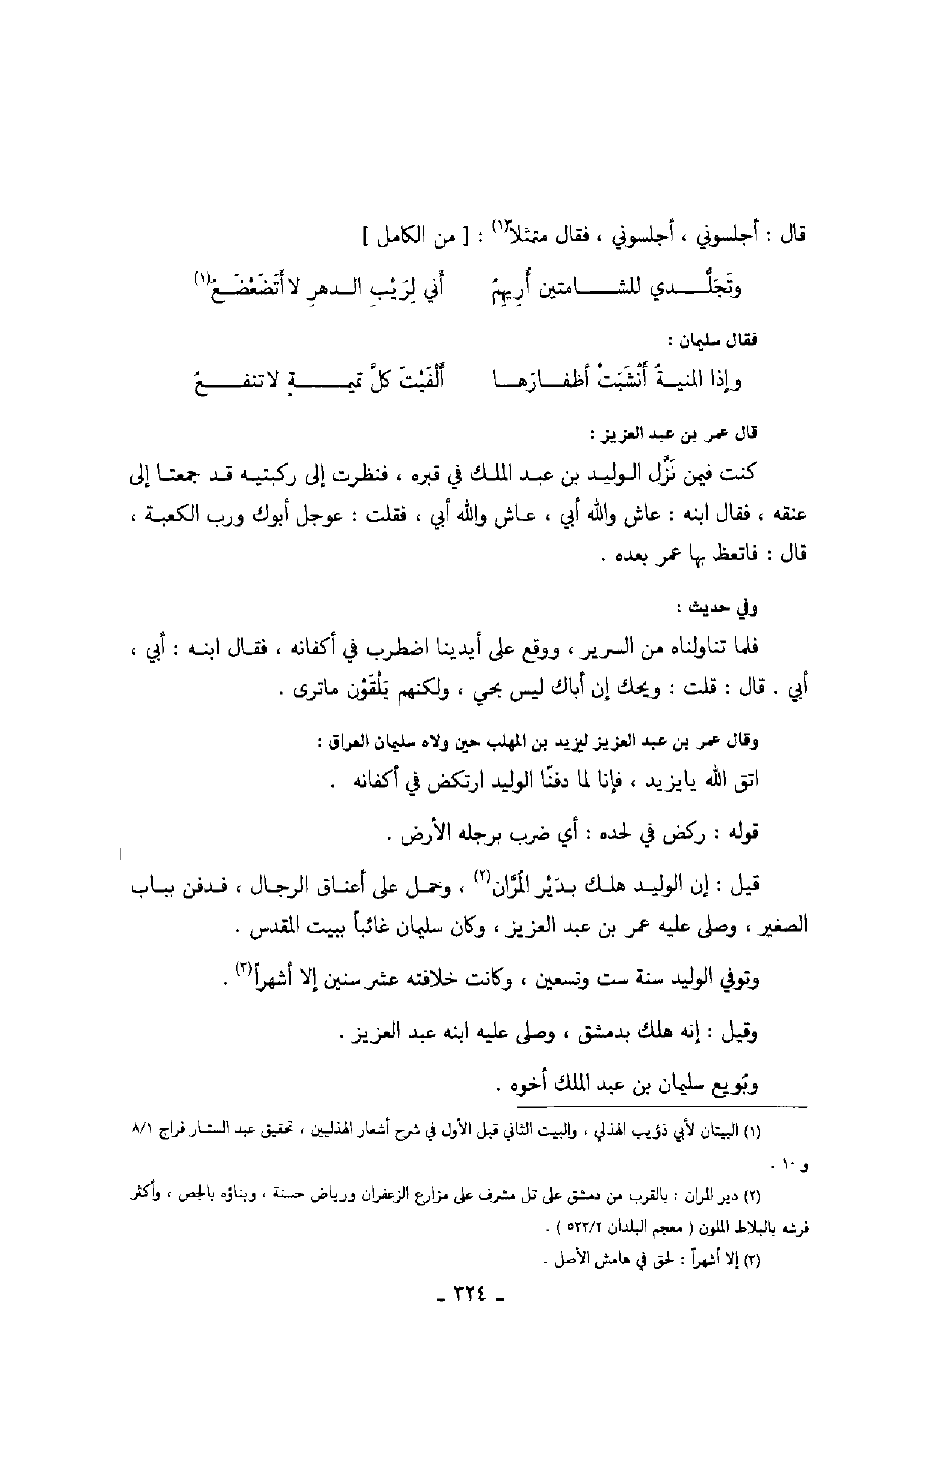 قال : أجلسوني ، أجلسوني ، فقال متمثلاً(١) : [ من الكامل ]
وتَجَلُّدي للشامتين أُرِيهِمُ أني لِرَيْبِ الدهرِ لا أَتَضَعْضَعُ(١)
فقال سليمان :
وإذا المنيةُ أَنْشَبَتْ أظفارَها أَلْفَيْتَ كلَّ تميةٍ لاتنفعُ
قال عمر بن عبد العزيز :
كنت فيمن نَزَّل الوليد بن عبد الملك في قبره ، فنظرت إلى ركبتيه قد جمعتا إلى
عنقه ، فقال ابنه : عاش والله أبي ، عاش والله أبي ، فقلت : عوجل أبوك ورب الكعبة ،
قال : فاتعظ بها عمر بعده .
وفي حديث :
فلما تناولناه من السرير ، ووقع على أيدينا اضطرب في أكفانه ، فقال ابنه : أبي ،
أبي . قال : قلت : ويحك إن أباك ليس بحي ، ولكنهم يَلْقَوْن ماترى .
وقال عمر بن عبد العزيز ليزيد بن المهلب حين ولاه سليمان العراق :
اتق الله يايزيد ، فإنا لما دفنّا الوليد ارتكض في أكفانه .
قوله : ركض في لحده : أي ضرب برجله الأرض .
قيل : إن الوليد هلك بدَيْر المُرَّان(٢) ، وحمل على أعناق الرجال ، فدفن بباب
الصغير ، وصلى عليه عمر بن عبد العزيز ، وكان سليمان غائباً ببيت المقدس .
وتوفي الوليد سنة ست وتسعين ، وكانت خلافته عشر سنين إلا أشهراً(٣) .
وقيل : إنه هلك بدمشق ، وصلى عليه ابنه عبد العزيز .
وبُويع سليمان بن عبد الملك أخوه .
(١) البيتان لأبي ذؤيب الهذلي ، والبيت الثاني قبل الأول في شرح أشعار الهذليين ، تحقيق عبد الستار فراج ٨/١
و ١٠ .
(٢) دير المران : بالقرب من دمشق على تل مشرف على مزارع الزعفران ورياض حسنة ، وبناؤه بالجص ، وأكثر
فرشه بالبلاط الملون ( معجم البلدان ٥٣٣/٢ ) .
(٣) إلا أشهراً : لحق في هامش الأصل .
ـ ٣٢٤ ـ